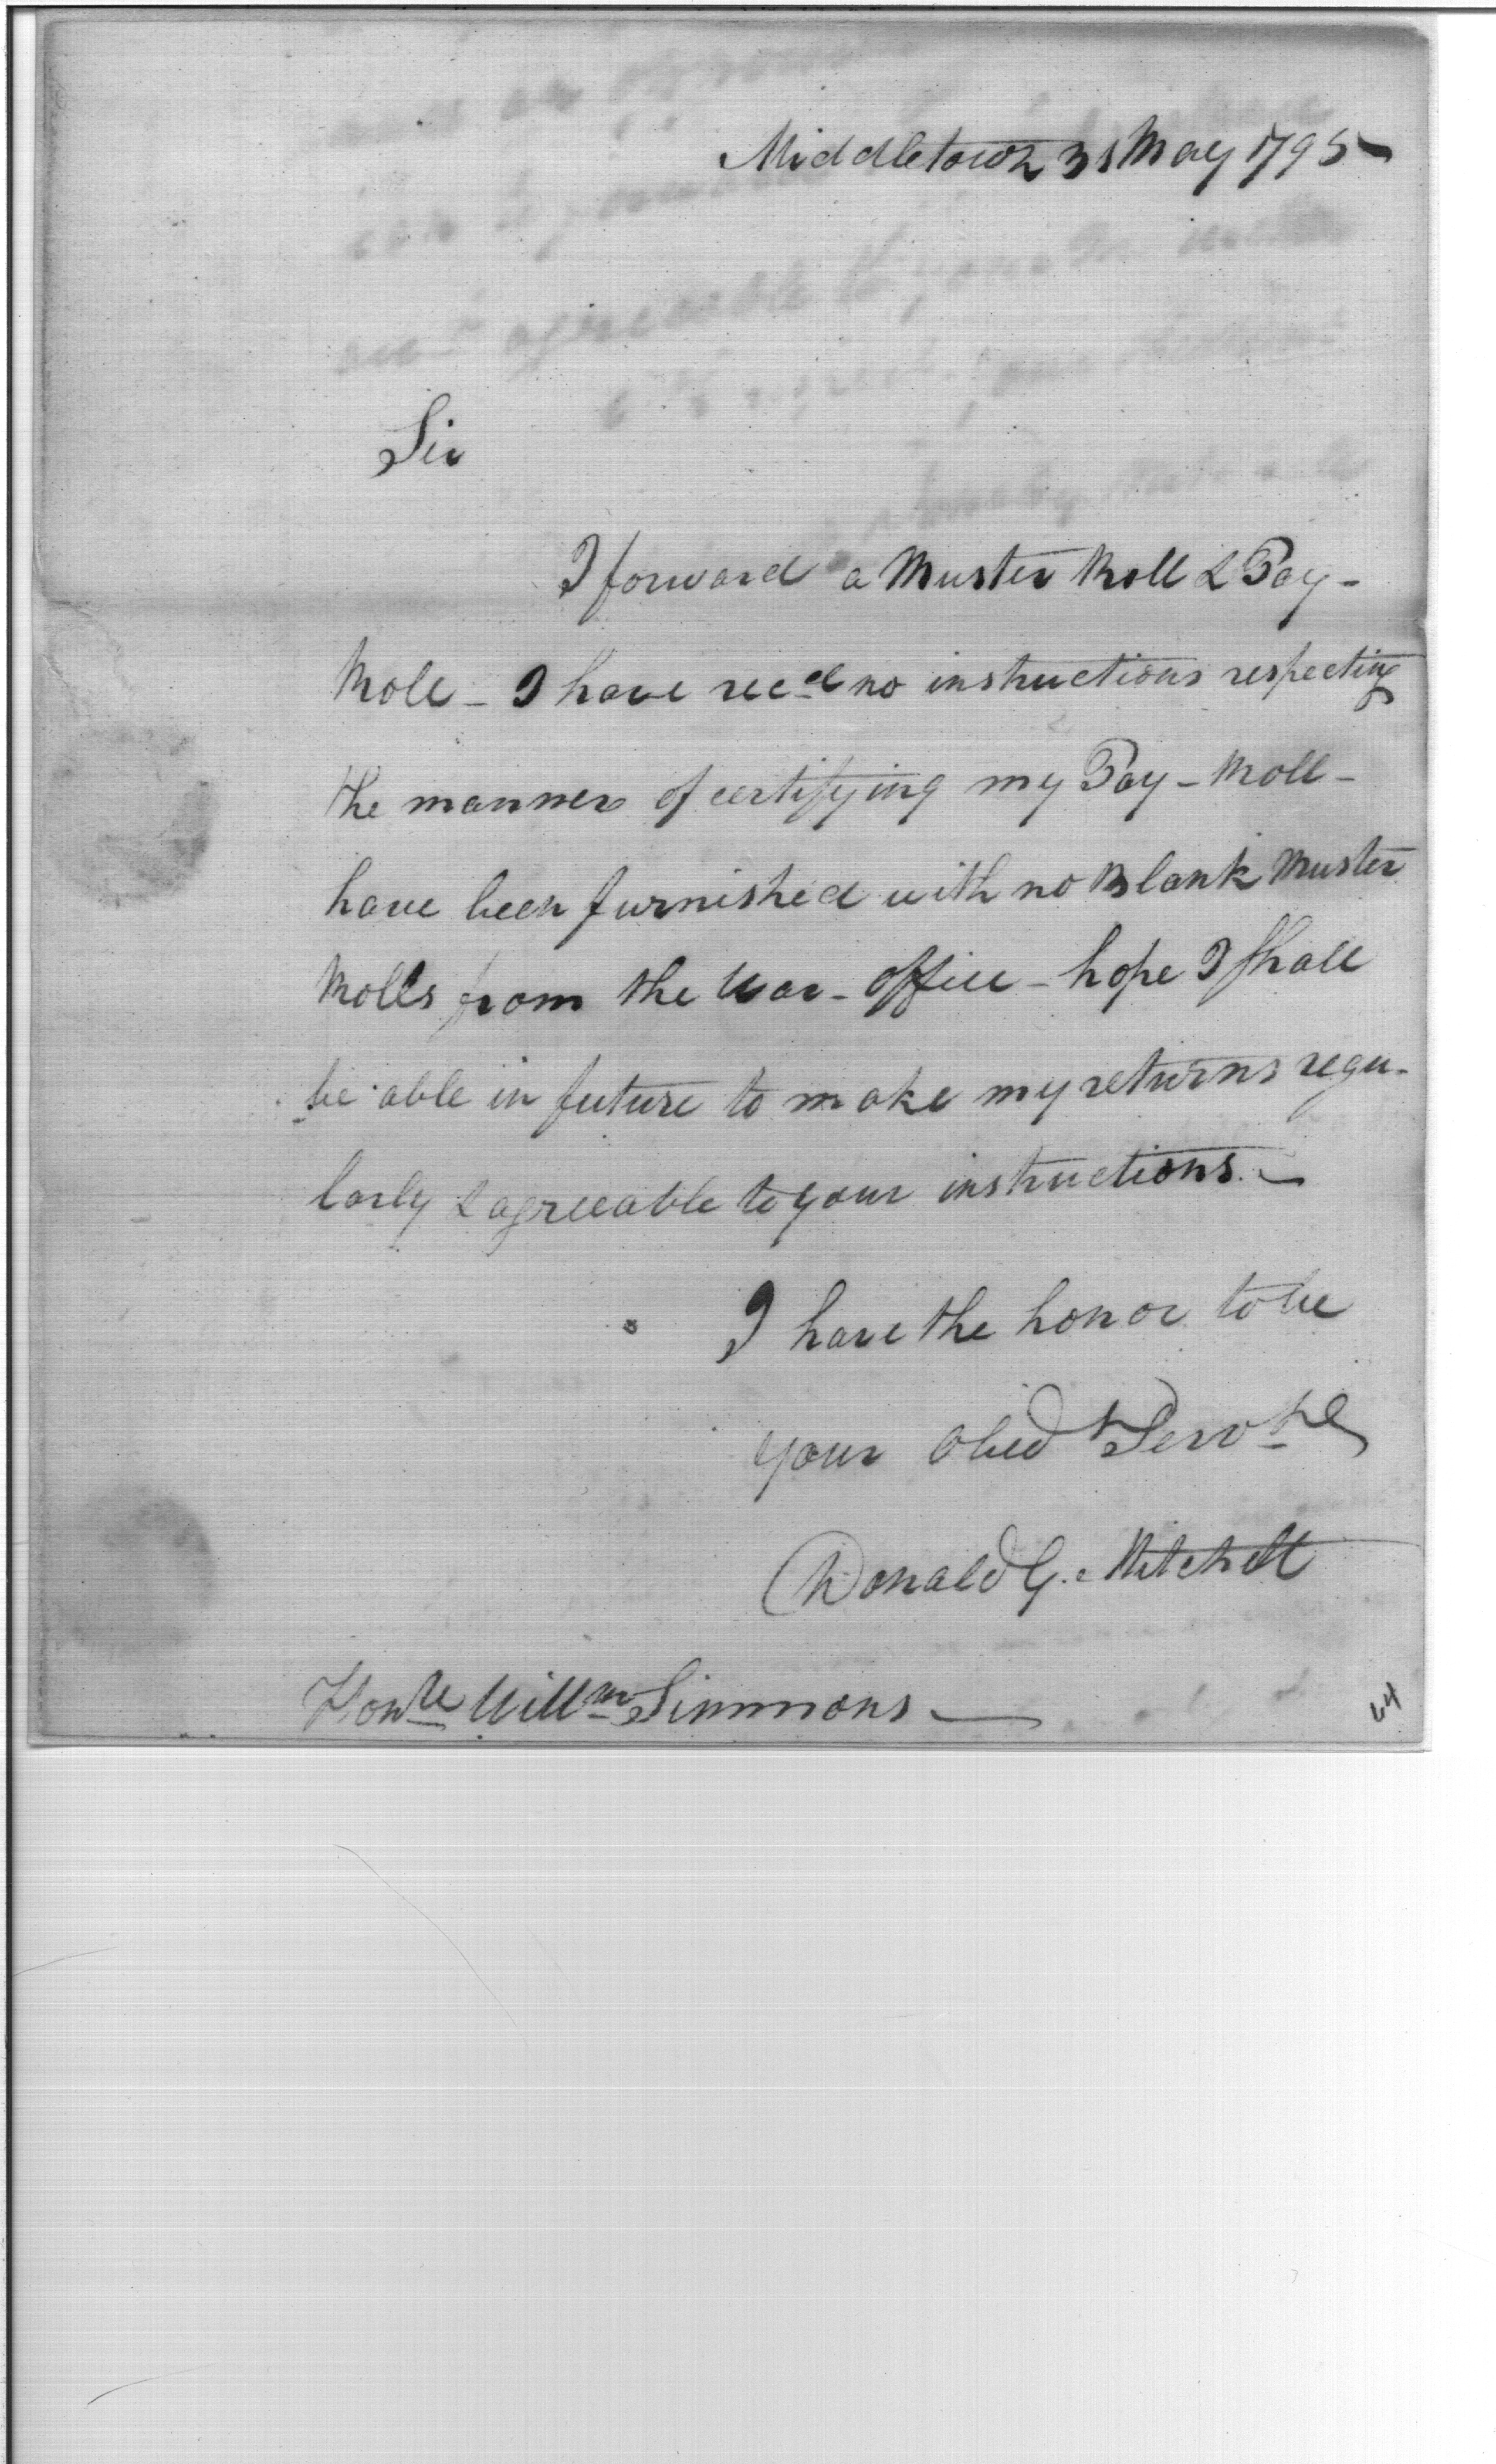 Middletown 31 May 1795
Sir
I forward a Muster Roll & Pay-
Roll - I have rec.d no instructions respecting
the manner of certifying my Pay - Roll -
have been furnished with no Blank Muster
Rolls from the War - office - hope I shall
be able in future to make my returns regu-
larly & agreeable to your instructions. -
I have the honor to be
your Obedt Servt
Donald G. Mitchell
Honle Willm Simmons -
64